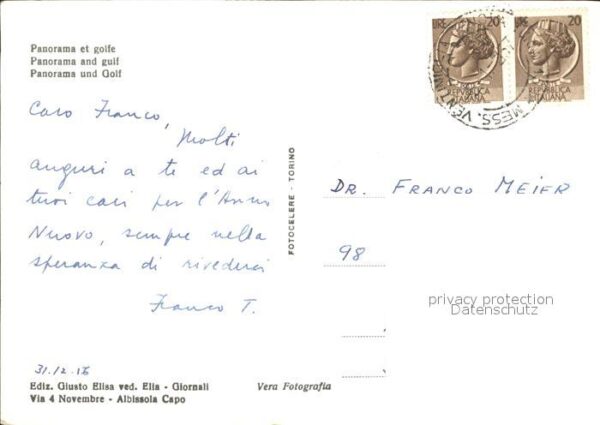 Panorama et golfe
Panorama and gulf
Panorama und Golf
LIRE 20
LIRE 20
REPUBBLICA
ITALIANA
REPUBBLICA
ITALIANA
MESS. VENTIMI
Caro Franco,
Molti
auguri a te ed ai
tuoi cari per l'Anno
Nuovo, sempre nella
speranza di rivederci
Franco T.
31.12.76
FOTOCELERE - TORINO
DR. FRANCO MEIER
98
privacy protection
Datenschutz
Ediz. Giusto Elisa ved. Elia - Giornali
Via 4 Novembre - Albissola Capo
Vera Fotografia